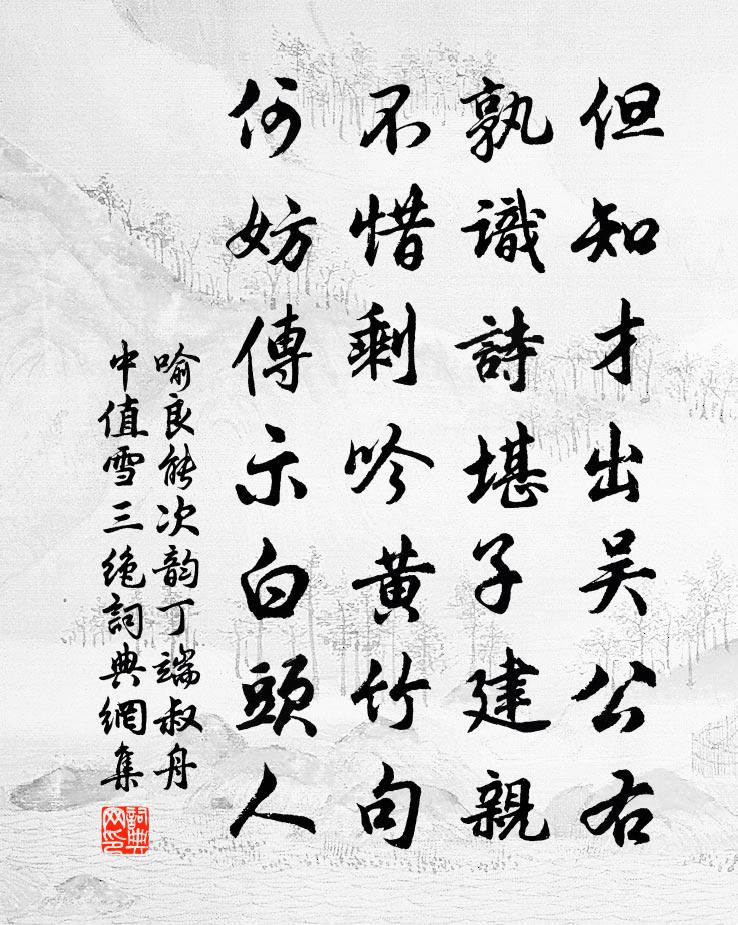 但知才出吴公右
孰識詩堪子建親
不惜剩吟黄竹句
何妨傳示白頭人
喻良能次韵丁端叔舟
中值雪三绝詞典網集
詞典网印